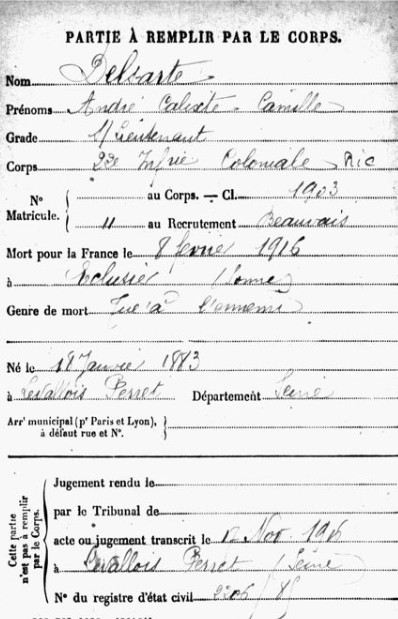 PARTIE À REMPLIR PAR LE CORPS.
Nom Delsarte
Prénoms André Calixte Camille
Grade S/Lieutenant
Corps 23e Infrie Coloniale Ric
No Matricule. { au Corps. — Cl. 1903
11 au Recrutement Beauvais
Mort pour la France le 8 février 1916
à Eclusier (Somme)
Genre de mort Tué à l'ennemi
Né le 18 Janvier 1883
à Levallois Perret Département Seine
Arrt municipal (pr Paris et Lyon),
à défaut rue et No.
Cette partie n'est pas à remplir par le Corps.
Jugement rendu le
par le Tribunal de
acte ou jugement transcrit le Nov. 1916
à Levallois Perret (Seine)
No du registre d'état civil 2206/